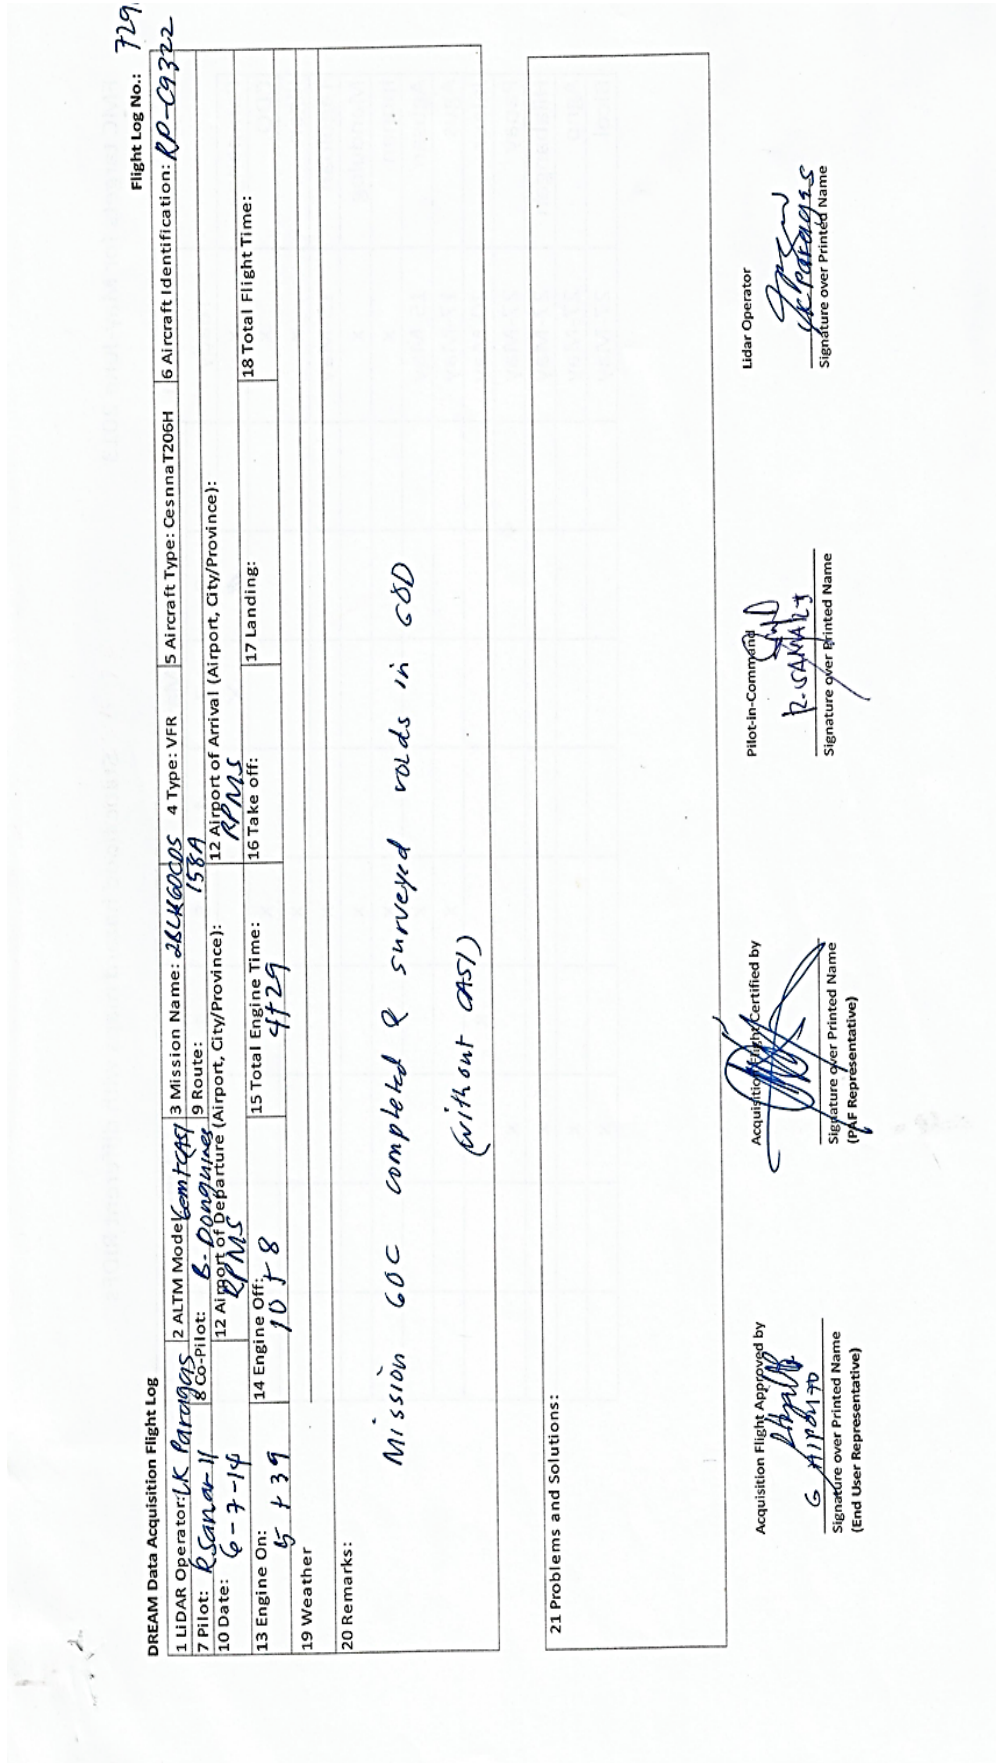 Flight Log No.: 729
DREAM Data Acquisition Flight Log
1 LiDAR Operator: LK Paragas 2 ALTM Model: Gem+CASI 3 Mission Name: 2BLK60CDS 4 Type: VFR 5 Aircraft Type: CesnnaT206H 6 Aircraft Identification: RP-C9322
7 Pilot: R Samar II 8 Co-Pilot: B. Donguines 9 Route: 158A
10 Date: 6-7-14 12 Airport of Departure (Airport, City/Province): RPMS 12 Airport of Arrival (Airport, City/Province): RPMS
13 Engine On: 5+39 14 Engine Off: 10+8 15 Total Engine Time: 4+29 16 Take off: 17 Landing: 18 Total Flight Time:
19 Weather
20 Remarks:
Mission 60C completed & surveyed voids in 60D
(without CASI)
21 Problems and Solutions:
Acquisition Flight Approved by
G
Signature over Printed Name
(End User Representative)
Acquisition Flight Certified by
Signature over Printed Name
(PAF Representative)
Pilot-in-Command
Signature over Printed Name
Lidar Operator
LK Paragas
Signature over Printed Name